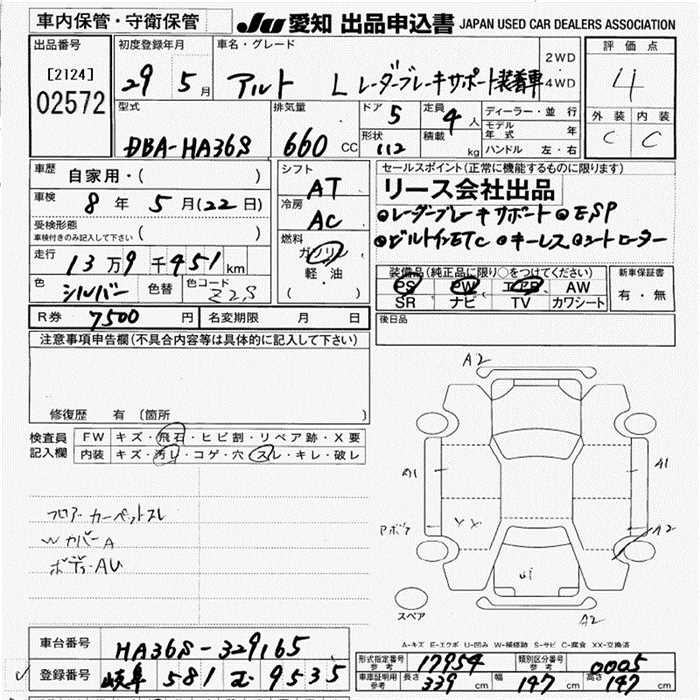 車内保管・守衛保管
JU 愛知 出品申込書 JAPAN USED CAR DEALERS ASSOCIATION
出品番号
[2124]
02572
初度登録年月
29 5 月
車名・グレード
アルト L レーダーブレーキサポート装着車
2WD
4WD
評価点
4
外装 内装
C C
型式
DBA-HA36S
排気量
660 CC
ドア 5
定員 4 人
形状
積載 kg
ディーラー・並行
モデル年式 年
ハンドル 左・右
車歴 自家用・( )
車検 8 年 5 月(22日)
受検形態
車検付きのみ記入して下さい ( )
走行 13万9千951km
色 シルバー 色替 色コード Z2S
シフト AT
冷房 AC
燃料 ガソリン
軽・油
( )
セールスポイント(正常に機能するものに限ります)
リース会社出品
●レーダーブレーキサポート ●ESP
●ビルトインETC ●キーレス●コントローラー
装備品(純正品に限り○をつけてください)
PS PW エアB AW
SR ナビ TV カワシート
新車保証書
有・無
後日品
R券 7500 円 名変期限 月 日
注意事項申告欄(不具合内容等は具体的に記入して下さい)
修復歴 有 (箇所 )
検査員記入欄
FW キズ・飛石・ヒビ割・リペア跡・X要
内装 キズ・汚レ・コゲ・穴・スレ・キレ・破レ
フロアカーペットスレ
WカバーA
ボディAU
A2
A1 A1
A2
A2
スペア
A-キズ E-エクボ U-凹み W-補修跡 S-サビ C-腐食 XX-交換済
車台番号 HA36S-329165
登録番号 岐阜 581 を 9535
形式指定番号 参考 17954
類別区分番号 参考 0005
車庫証明用 参考 長さ 339 cm 幅 147 cm 高さ 147 cm